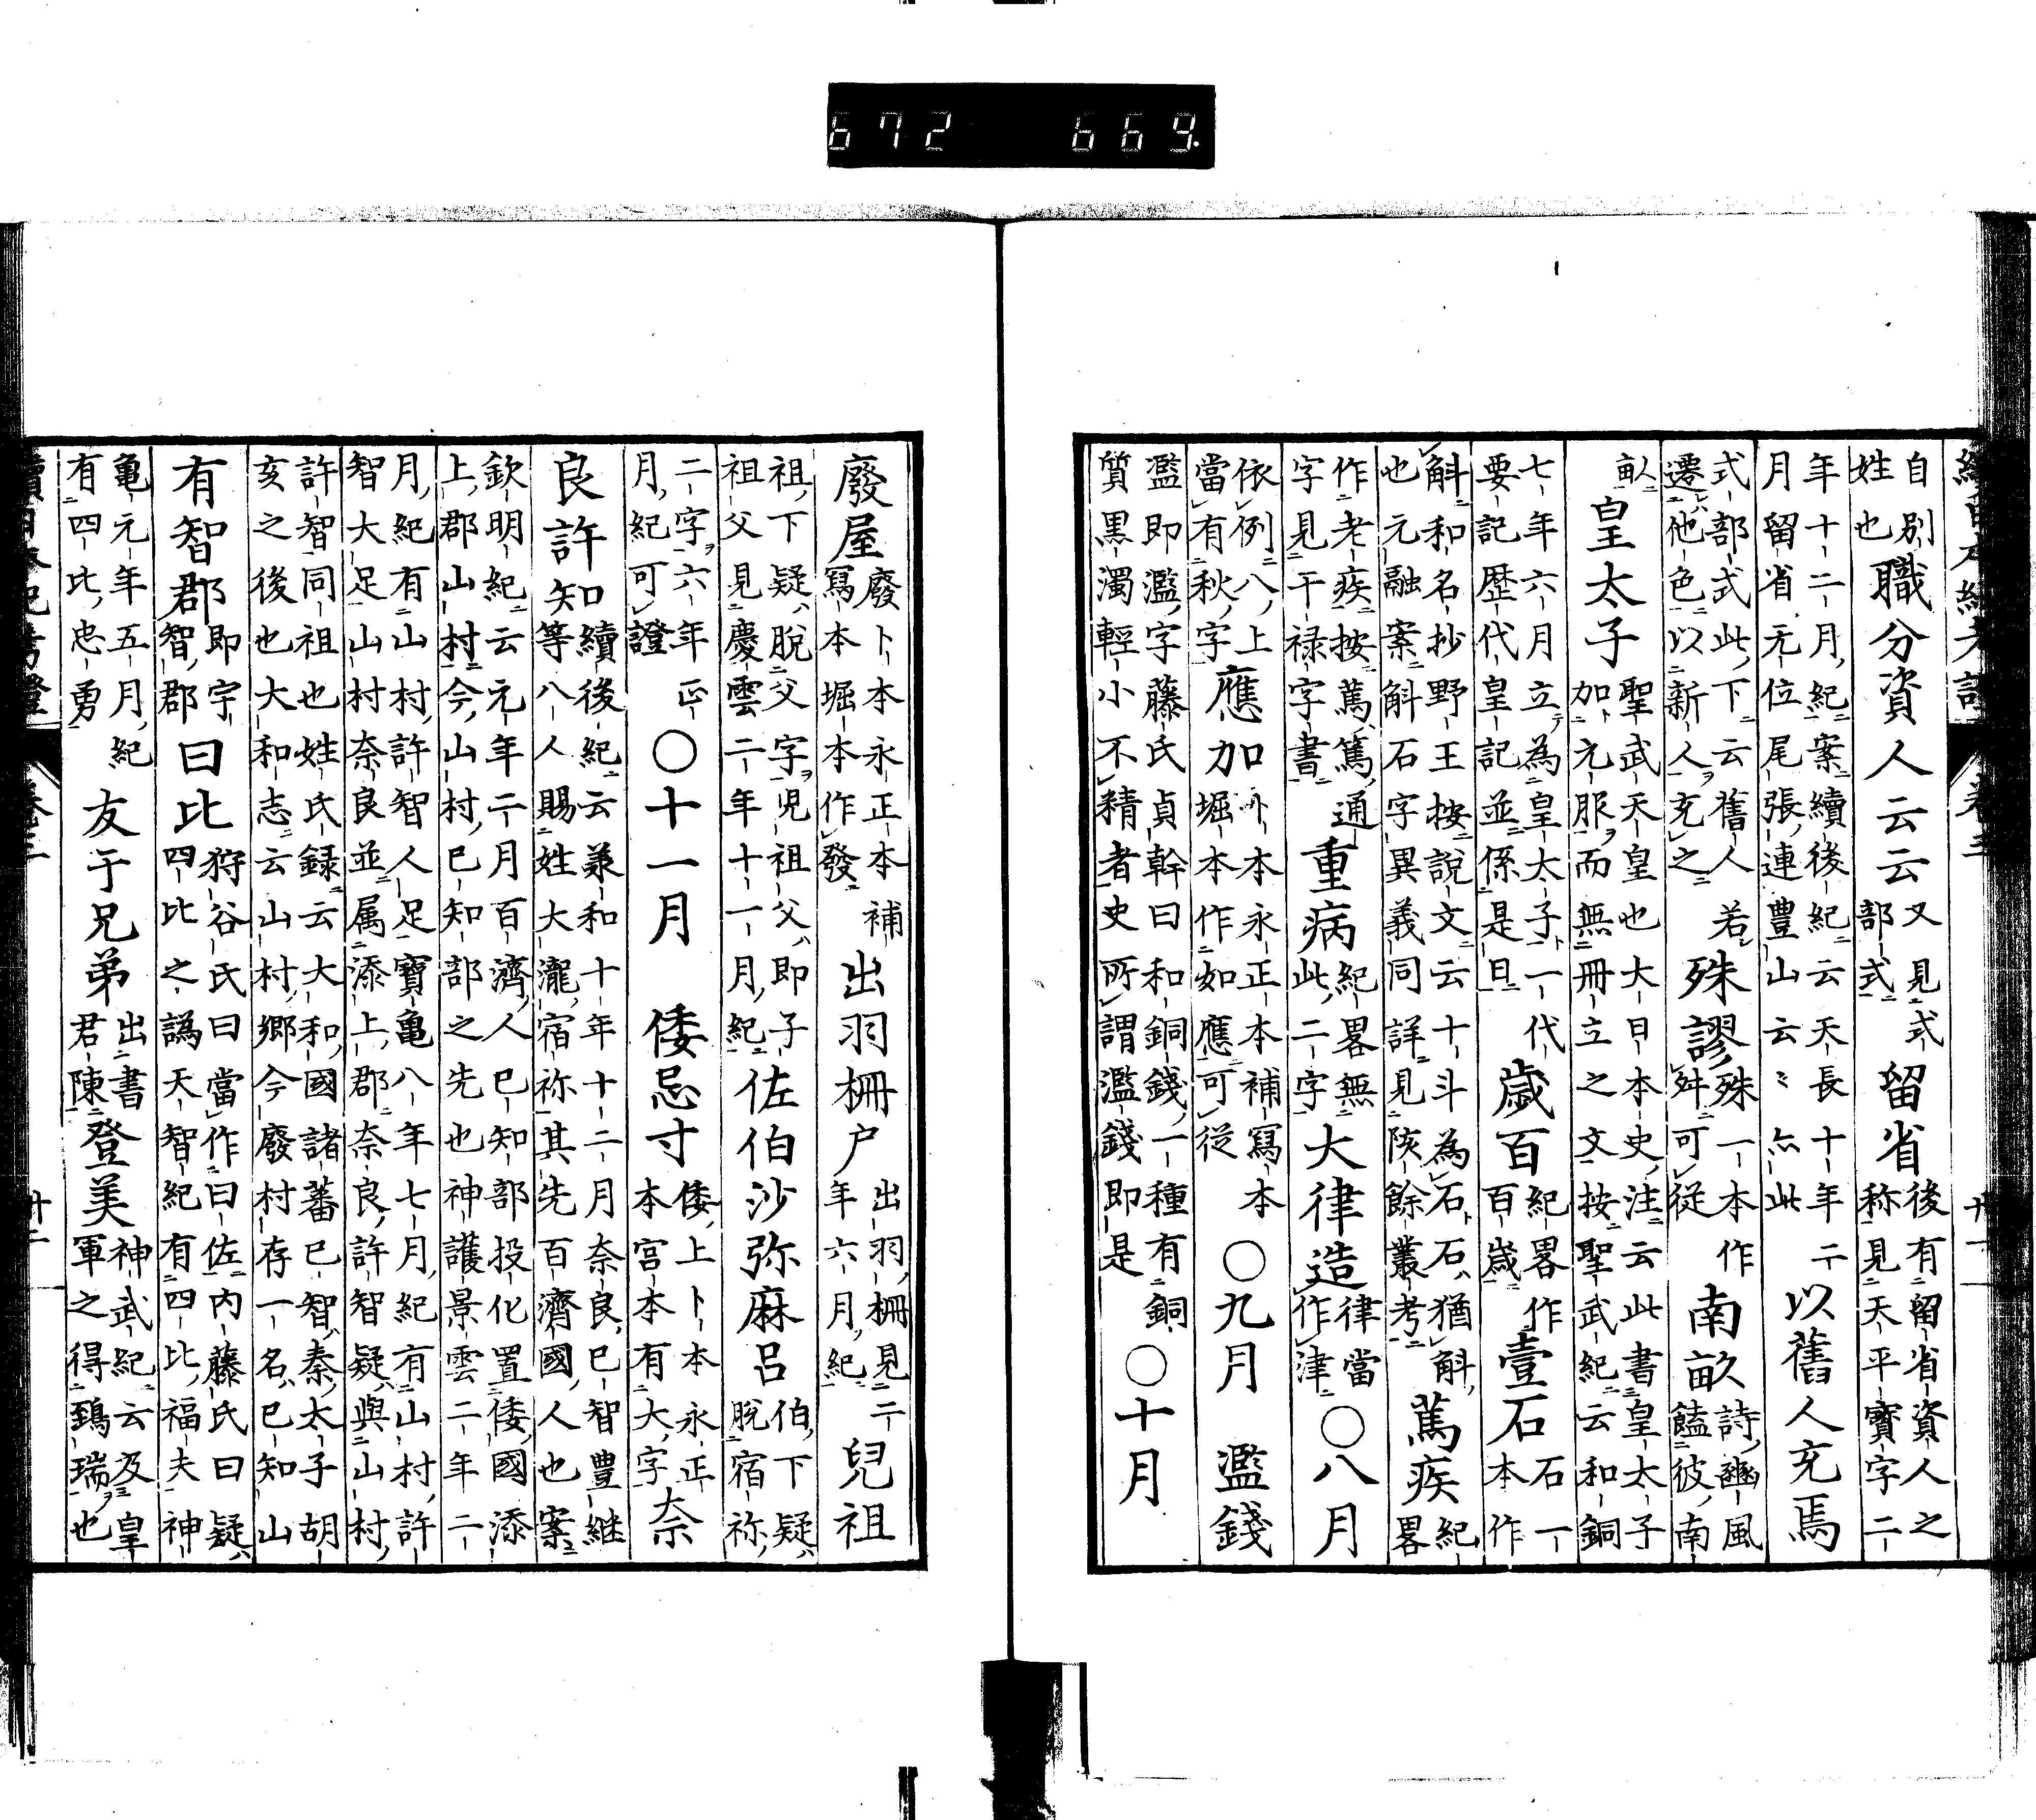 續日本紀考證 卷三 十一
自別姓也職分資人云云又見式部式留省後有留省資人之称見天平寳字二
年十二月紀案續後紀云天長十年二月留省无位尾張連豊山云〻亦此以舊人充焉
式部式此下云舊人若遷他色以新人充之殊謬殊一本作舛可從南畝詩豳風饁彼南
畝皇太子聖武天皇也大日本史注云此書皇太子加元服而無冊立之文按聖武紀云和銅
七年六月立為皇太子一代要記歴代皇記並係是日歳百紀畧作百歳壹石石一本作
斛和名抄野王按說文云十斗為石石猶斛也元融案斛石字異義同詳見陔餘叢考篤疾紀畧
作老疾按篤篤通字見干禄字書重病紀畧無此二字大律造律當作津〇八月
依例八上當有秋字應加卜本永正本補寫本堀本作如應可從〇九月 濫錢
濫即濫字藤氏貞幹曰和銅錢一種有銅質黒濁輕小不精者史所謂濫錢即是〇十月
廢屋廢卜本永正本補寫本堀本作發出羽柵户出羽柵見二年六月紀兒祖
祖下疑脫父字児祖父即子祖父見慶雲二年十一月紀佐伯沙弥麻呂伯下疑脫宿祢
二字六年正月紀可證〇十一月 倭忌寸倭上卜本永正本宮本有大字奈
良許知續後紀云承和十年十二月奈良已智豊継等八人賜姓大瀧宿祢其先百濟國人也案
欽明紀云元年二月百濟人已知部投化置倭國添上郡山村今山村已知部之先也神護景雲二年二
月紀有山村許智人足寶亀八年七月紀有山村許智大足山村奈良並属添上郡奈良許智疑與山村
許智同祖也姓氏録云大和國諸蕃已智秦太子胡亥之後也大和志云山村郷今廢村存一名已知山
有智郡即宇智郡曰比狩谷氏曰當作曰佐内藤氏曰疑四比之譌天智紀有四比福夫神
亀元年五月紀有四比忠勇友于兄弟出書君陳登美神武紀云及皇軍之得鵄瑞也
續日本紀考證 卷三 十二
672 669.